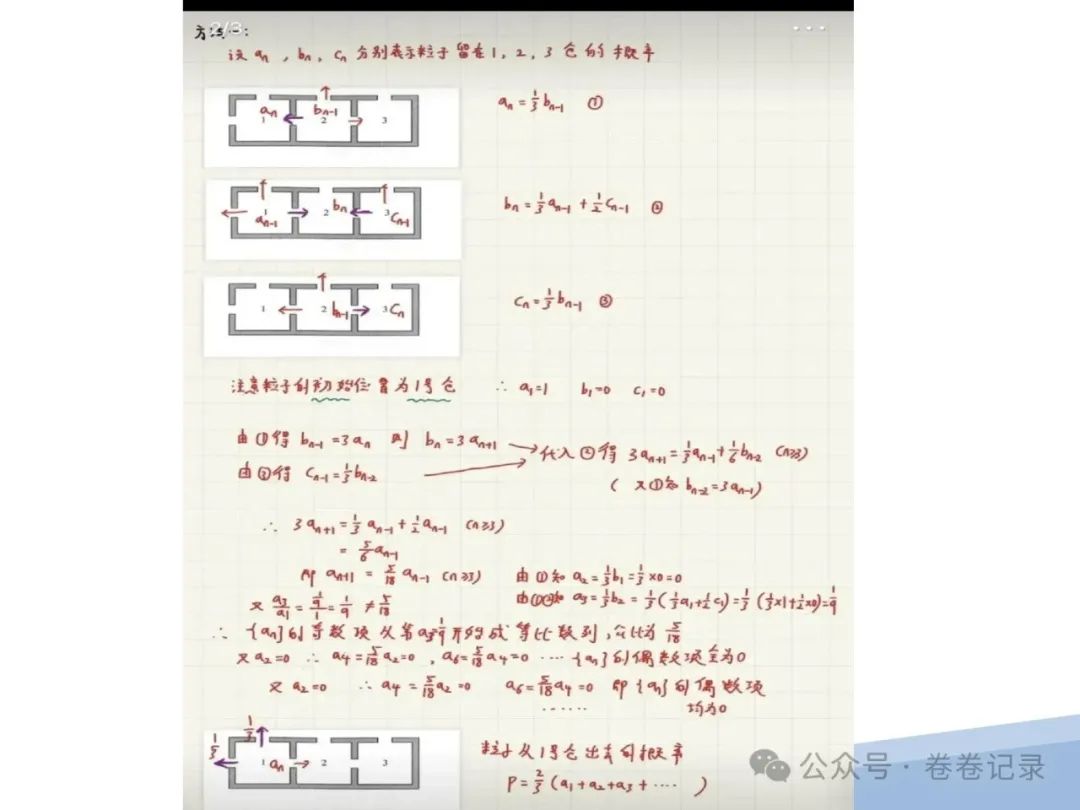 2/3
方法一:
设 aₙ , bₙ , cₙ 分别表示粒子留在1, 2, 3 仓的概率
aₙ 1 bₙ₋₁ 2 3
aₙ = 1/3 bₙ₋₁ ①
1 aₙ₋₁ 2 bₙ 3 cₙ₋₁
bₙ = 1/3 aₙ₋₁ + 1/2 cₙ₋₁ ②
1 2 bₙ₋₁ 3 cₙ
cₙ = 1/3 bₙ₋₁ ③
注意粒子的初始位置为1号仓 ∴ a₁=1 b₁=0 c₁=0
由①得 bₙ₋₁ = 3aₙ 则 bₙ = 3aₙ₊₁
由③得 cₙ₋₁ = 1/3 bₙ₋₂
代入②得 3aₙ₊₁ = 1/3 aₙ₋₁ + 1/6 bₙ₋₂ (n≥3)
( 又①知 bₙ₋₂ = 3aₙ₋₁)
∴ 3aₙ₊₁ = 1/3 aₙ₋₁ + 1/2 aₙ₋₁ (n≥3)
= 5/6 aₙ₋₁
即 aₙ₊₁ = 5/18 aₙ₋₁ (n≥3) 由①知 a₂ = 1/3 b₁ = 1/3 ×0 = 0
又 a₃/a₁ = 1/9/1 = 1/9 ≠ 5/18 由①②知 a₃ = 1/3 b₂ = 1/3 ( 1/3 a₁ + 1/2 c₁) = 1/3 ( 1/3 ×1 + 1/2 ×0) = 1/9
∴ {aₙ}的奇数项从第a₃=1/9开始成等比数列, 公比为 5/18
又 a₂=0 ∴ a₄ = 5/18 a₂ = 0 , a₆ = 5/18 a₄ = 0 ···· {aₙ}的偶数项全为0
又 a₂=0 ∴ a₄ = 5/18 a₂ = 0 a₆ = 5/18 a₄ = 0 即{aₙ}的偶数项
······ 均为0
1/3 1/3 1 aₙ 2 3
粒子从1号仓出去的概率
P = 2/3 (a₁+a₂+a₃+ ···· )
公众号 · 卷卷记录